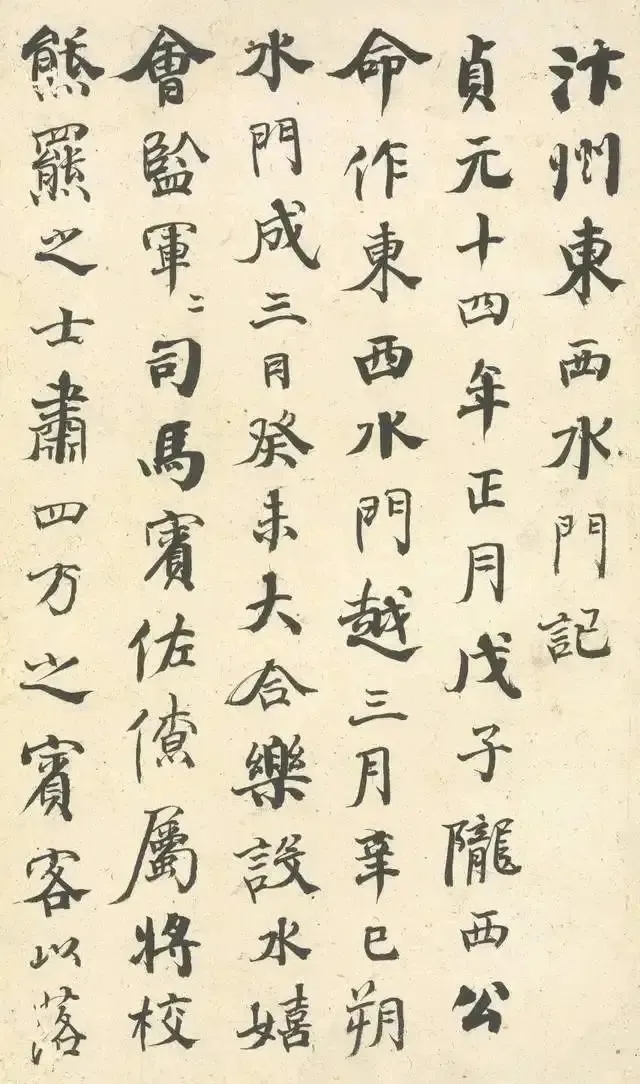 汴州東西水門記
貞元十四年正月戊子隴西公
命作東西水門越三月辛巳朔
水門成三月癸未大合樂設水嬉
會監軍〻司馬賓佐僚屬將校
熊羆之士肅四方之賓客以落